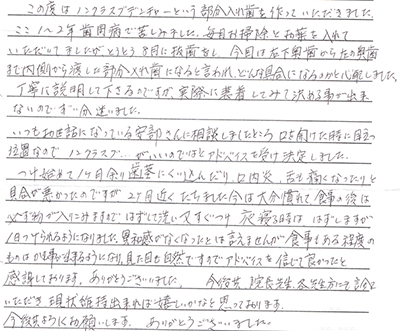 この度はノンクラスプデンチャーという部分入れ歯を作っていただきました。
ここ1～2年歯周病で苦しみました。毎月お掃除とお薬を入れて
いただいてましたがとうとう8月に抜歯をし、今回は左下奥歯から右の奥歯
まで内側から渡した部分入れ歯になると言われ、どんな具合になるのかと心配しました。
丁寧に説明して下さるのですが、実際に装着してみて決める事が出来
ないのですい分迷いました。
いつもお世話になっている安部さんに相談しましたところ 口を開けた時に目立つ
位置なので ノンクラスプ がいいのではとアドバイスを受け決定しました。
つけ始めて1ヶ月余り歯茎にくい込んだり、口内炎、舌も痛くなったりと
具合が悪かったのですが2ヶ月近くたちました今は大分慣れて食事の後は
必ず物が入りこみますので はずして洗い又すぐつけ 夜寝る時は はずしますが
1日つけられるようになりました。異和感がなくなったとは言えませんが食事もある程度の
ものはかむ事が出来るようになり、見た目も自然ですのでアドバイスを信じて良かったと
感謝しております。ありがとうございました。 今後共 院長先生、各先生方に
いただき 現状維持出来れば嬉しいかなと思っております。
今後共よろしくお願いします。 ありがとうございました。